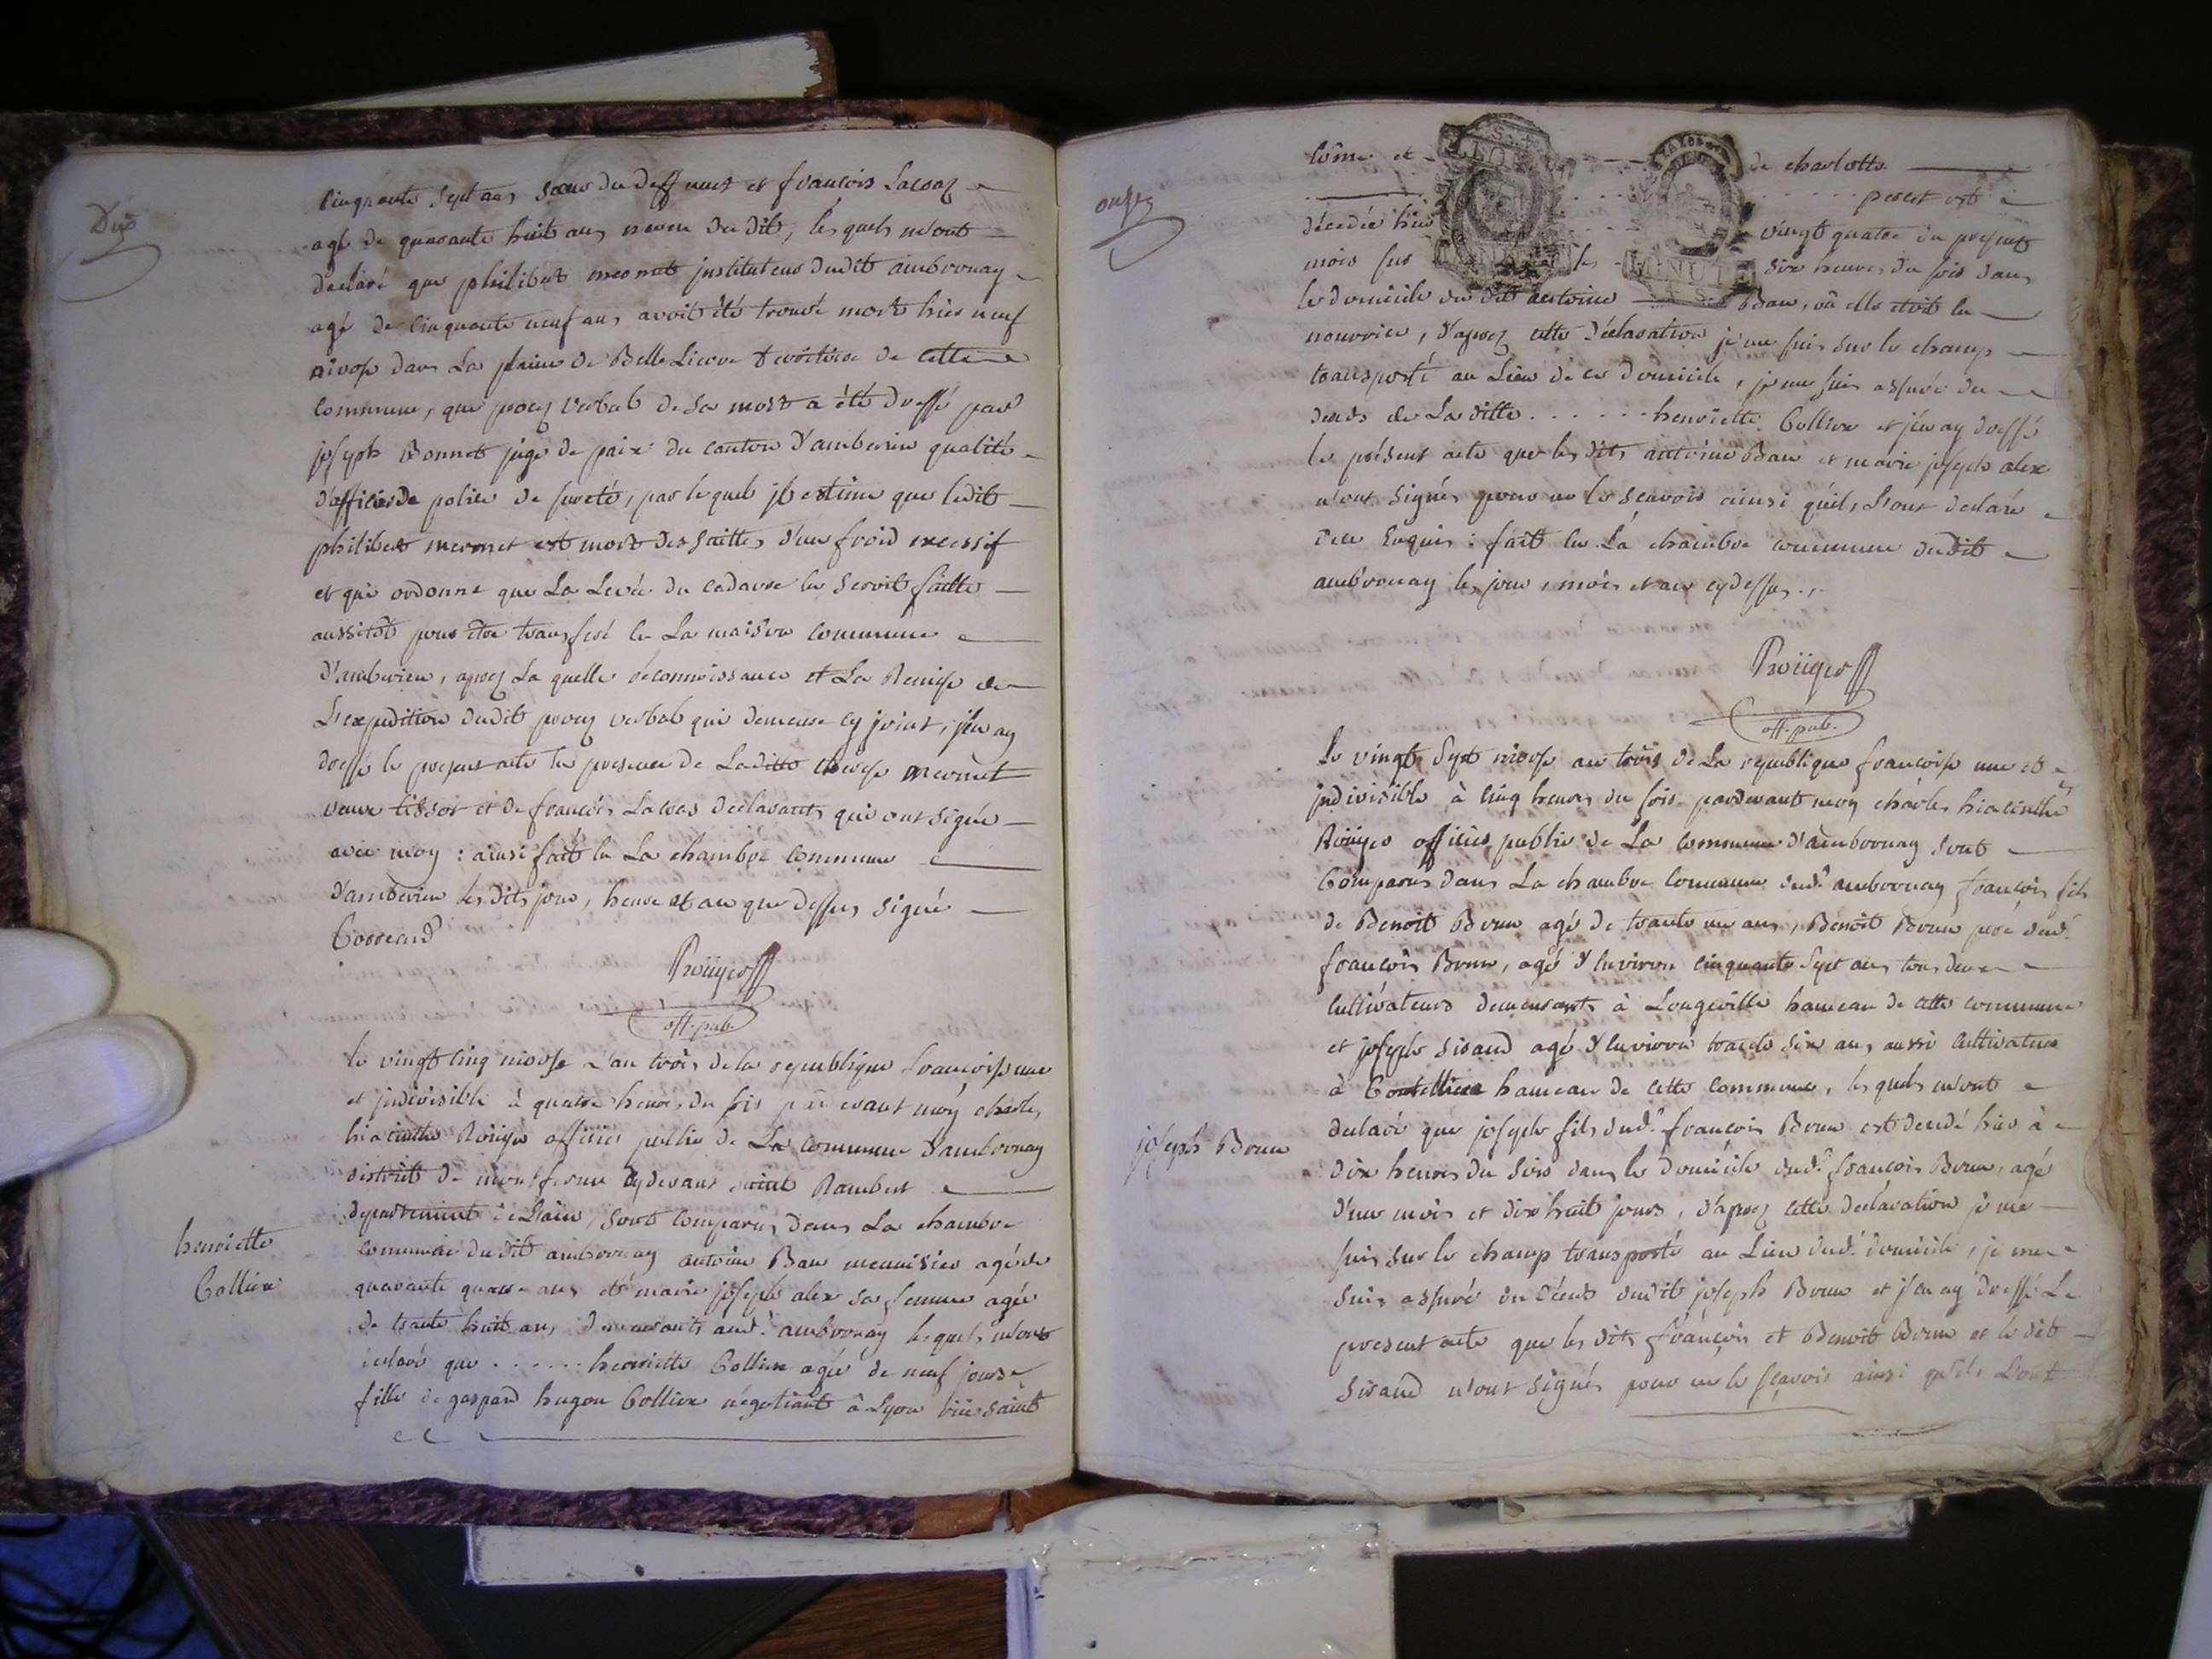 Dix
cinquante sept ans sœur du deffunct et francois Lacraz
agé de quarante huit ans neveu du dit, lesquels m'ont
déclaré que philibert mermet instituteur dudit ambronay
agé de cinquante neuf ans, avoit été trouvé mort hier neuf
nivose dans La plaine de Belle Lievre territoire de cette
commune, que procez verbal de sa mort a été dressé par
joseph Bonnet juge de paix du canton d'amberieu qualité
d'officier de police de sureté, par lequel il estime que ledit
philibert mermet est mort des suittes d'un froid excessif
et qui ordonne que La Levée du cadavre en seroit faitte
aussitôt pour être transferé en La maison commune
d'amberieu, aprez La quelle réconnoissance et La Remise de
L'expedition dudit procez verbal qui demeure cy joint, j'en ay
dressé le present acte en presence de Laditte therese mermet
veuve tissot et de francois Lacraz declarants qui ont signé
avec moy : ainsi fait en La chambre commune
d'amberieu les dits jour, heure et an que dessus signé
Correard
Roüyer
off. pub.
henriette
Collion
le vingt cinq nivose L'an trois de la republique francoise une
et indivisible à quatre heures du soir par devant moy charles
hiacinthe Roüyer officier public de La commune d'ambronay
district de montferme cydevant saint Rambert
departement de L'ain, sont comparus dans La chambre
commune du dit ambronay antoine Bau menuisier agé de
quarante quatre ans et marie joseph alex sa femme agée
de trante huit ans, demeurants aud.t ambronay lesquels m'ont
declaré que . . . . . . henriette Collion agée de neuf jours
fille de gaspard hugon Collion négotiant à Lyon rüe saint
onze
côme et de charlotte
percet est
décedée hier vingt quatre du present
mois sur les six heures du soir dans
le domicile du dit antoine Bau, où elle étoit en
nourrice, d'aprez cette déclaration je me suis sur le champ
transporté au Lieu de ce domicile, je me suis assuré du
decès de La ditte . . . . . . henriette Collion et j'en ay dressé
le présent acte que les dits antoine Bau et marie joseph alex
n'ont signés pour ne le scavoir ainsi qu'ils L'ont declaré
de ce Enquis : fait en La chambre commune dudit
ambronay les jour, mois et an cy dessus.
Roüyer
off. pub.
joseph Brun
Le vingt Sept nivose an trois de La republique francoise une et
indivisible à cinq heures du soir pardevant moy charles hiacinthe
Roüyer officier public de La commune d'ambronay sont
Comparus dans La chambre commune dud.t ambronay francois fils
de Benoit Brun agé de trante un ans, Benoit Brun pere dud.t
francois Brun, agé d'environ cinquante Sept ans tous deux
cultivateurs demeurants à Longeville hameau de cette commune
et joseph Sirand agé d'environ trante six ans, aussi cultivateur
à Coutelliere hameau de cette commune, les quels m'ont
declaré que joseph fils dud.t francois Brun est decedé hier à
dix heures du soir dans le domicile dud.t francois Brun, agé
d'un mois et dix huit jours, d'aprez cette declaration je me
suis sur le champ transporté au Lieu dud.t domicile, je me
suis assuré du décès dudit joseph Brun et j'en ay dressé Le
present acte que les dits francois et Benoit Brun et le dit
Sirand n'ont signés pour ne le scavoir ainsi qu'ils L'ont